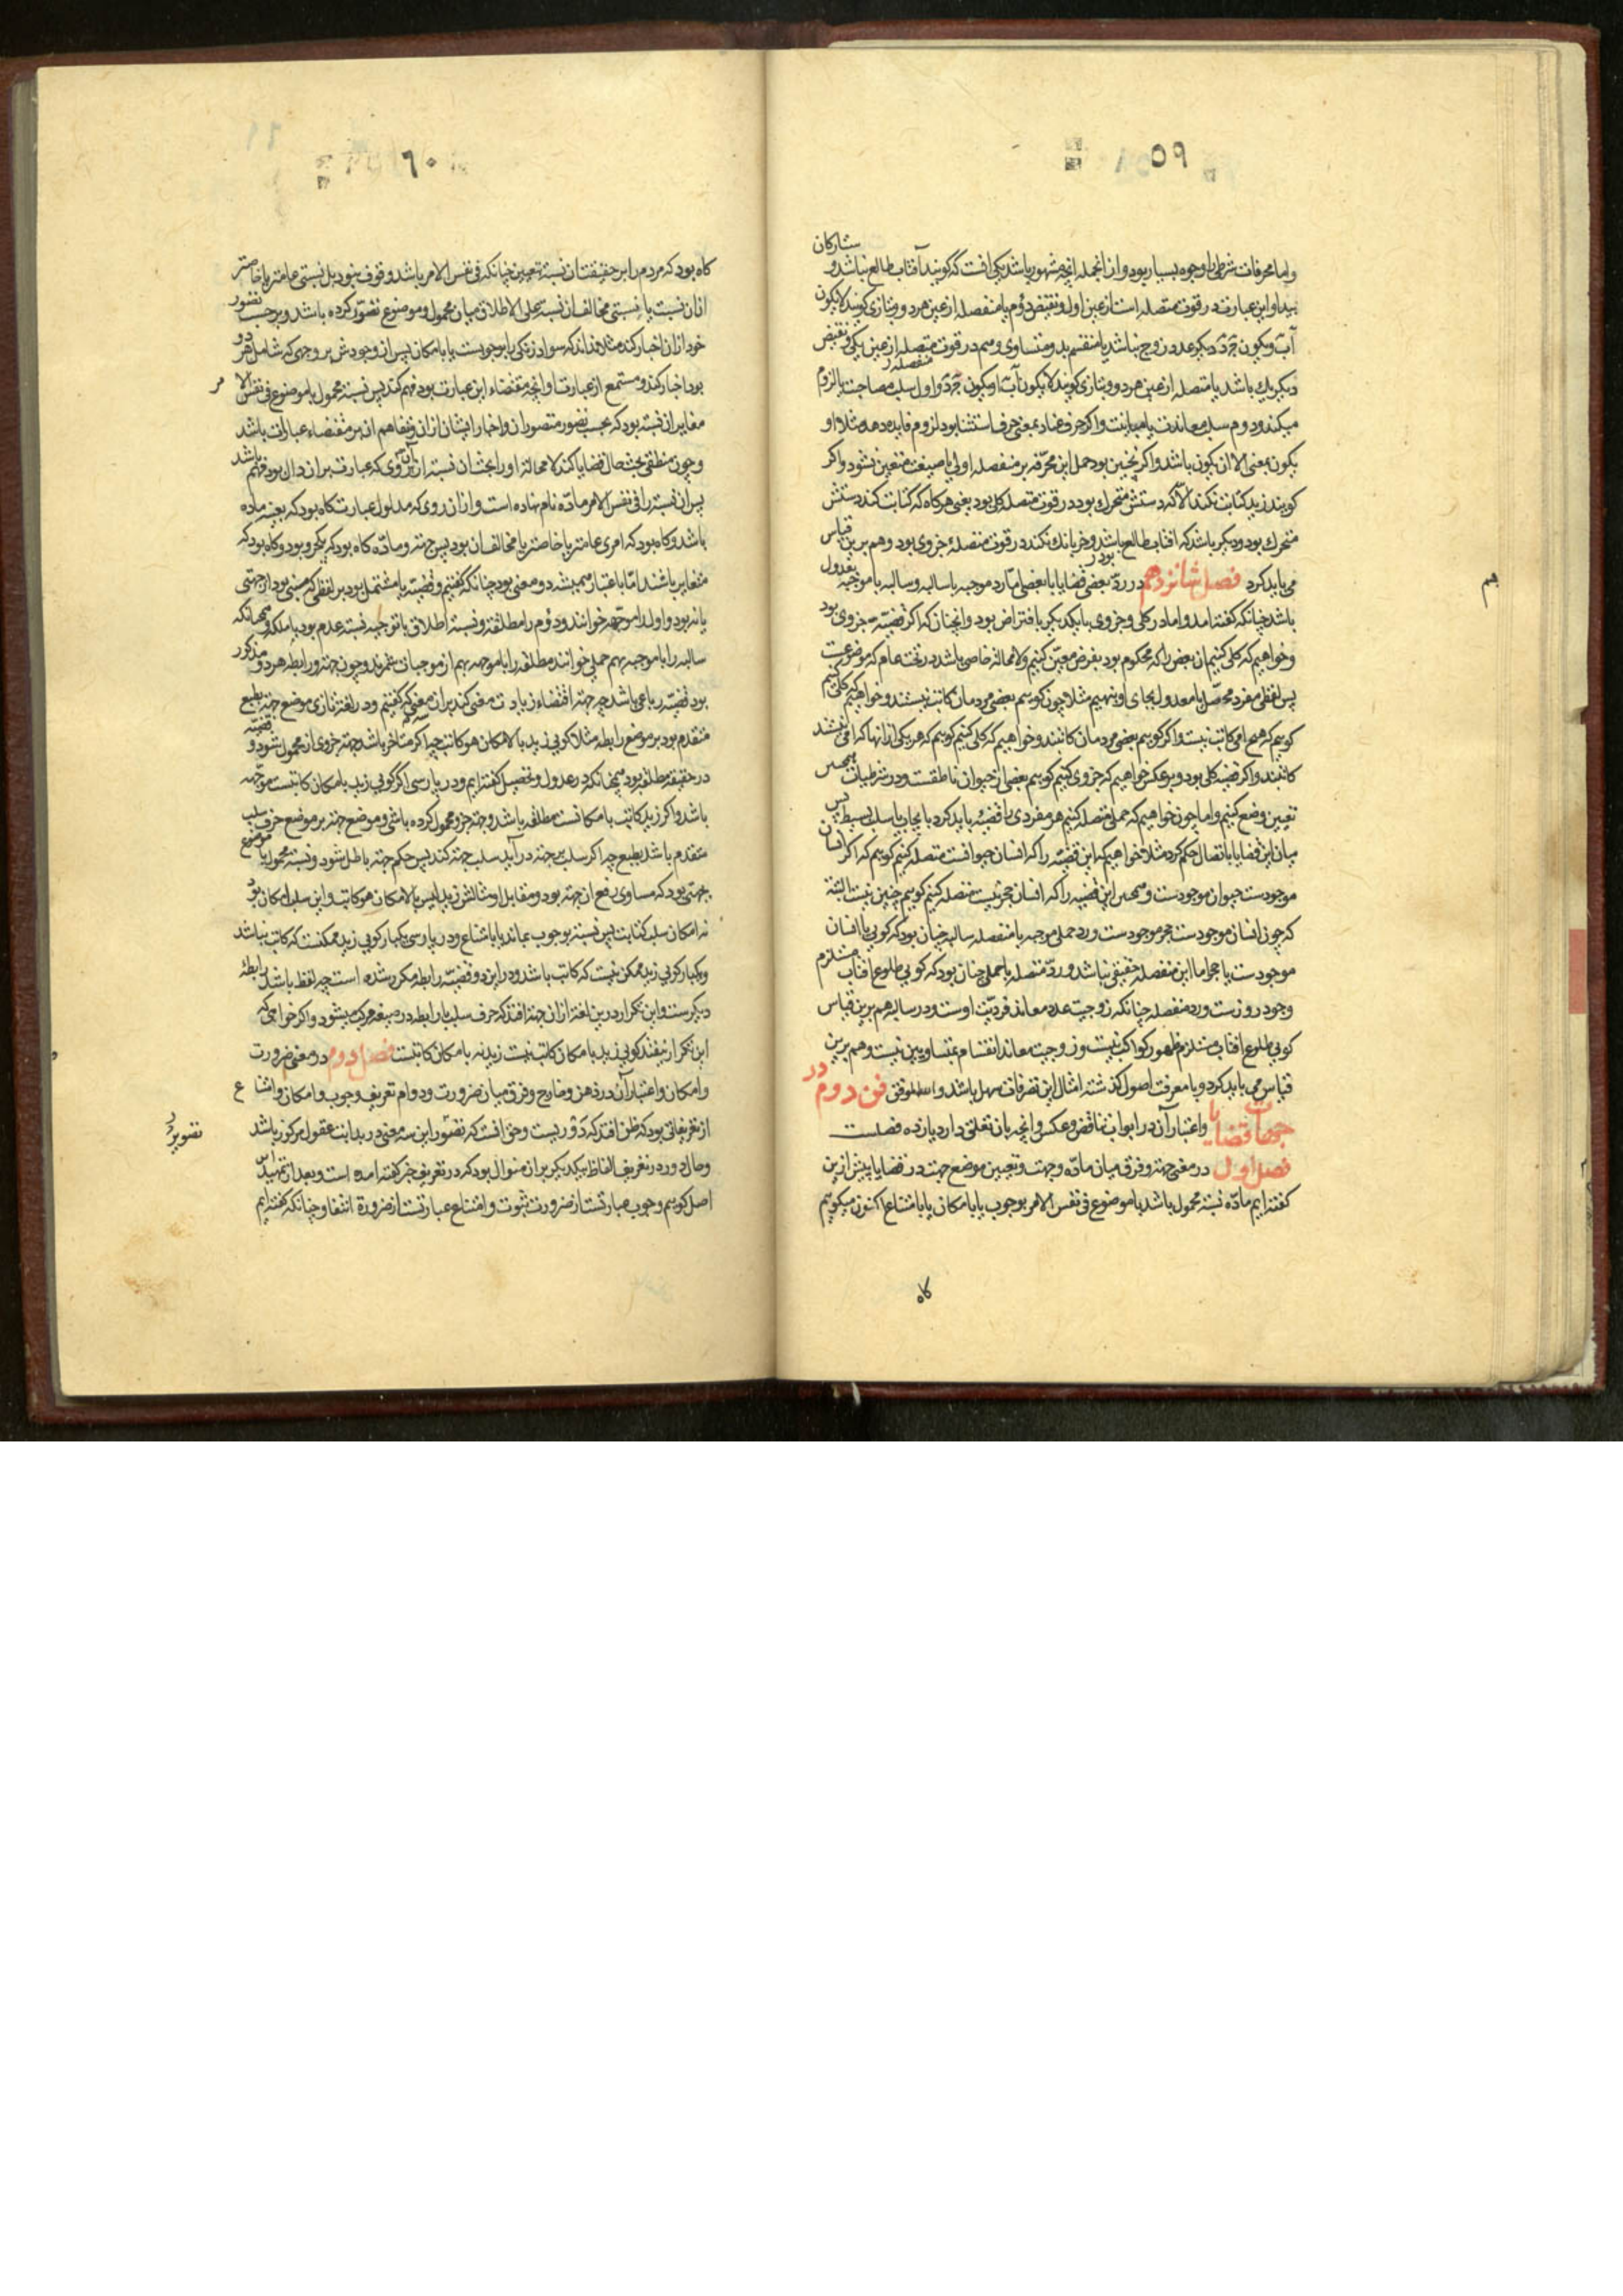 ۵۹
واما محرفات شرطی را وجوه بسیار بود و از انجمله انچه مشهور باشد یکی انست که گویند آفتاب طالع نباشد و ستارکان
پیدا و این عبارت در قوت متصله است از عین اول و نقیض دوم یا منفصله از عین هر دو و بتازی گویند لایکون
آب و یکون جد دیکر عدد زوج نباشد یا منقسم بدو متساوی و هم در قوت متصله از عین یکی و نقیض
دیکر یک باشد یا متصله از عین هر دو و بتازی گویند لایکون آب او یکون جد و اول سلب مصاحبت یا لزوم
میکند و دوم سلب معاندت یا مباینت واکر حرف عناد بمعنی حرف استثنا بود لزوم فایده دهد مثلا او
یکون بمعنی الا ان یکون باشد واکر چنین بود حمل این محرفه بر منفصله اولی یا صیغت متعین نشود واکر
گویند زید کتابت نکند الا که دستش متحرک بود در قوت متصله کلی بود یعنی هرکاه که کتابت کند دستش
متحرک بود و دیکر باشد که افتاب طالع باشد و خر بانک نکند در قوت متصله جزوی بود و هم برین قیاس
می باید کرد فصل شانزدهم در رد بعضی قضایا با بعضی اما رد موجبه با سالبه و سالبه با موجبه بعدول بود
هم
باشد چنانکه گفته امد و اما در کلی و جزوی با یکدیکر بافتراض بود و انچنان که اکر قضیه جزوی بود
وخواهیم که کلی کنیم ان بعض را که محکوم بود بفرض معین کنیم ولا محاله خاصی باشد در تحت عام که موضوعست
پس لفظی مفرد محصل یا معدول بجای او بنهیم مثلا چون گوییم بعضی مردمان کاتب نیستند وخواهیم که کلی کنیم
گوییم که هیچ امی کاتب نیست واکر گوییم بعضی مردمان کاتبند وخواهیم که کلی کنیم گوییم که هر یکی از انها که امی نیستند
کاتبند واکر قضیه کلی بود و بر عکس خواهیم که جزوی کنیم گوییم بعضی از حیوان ناطقست و در شرطیات همچنین
تعیین وضع کنیم واما چون خواهیم که حملی متصله کنیم هر مفردی را قضیه باید کرد بایجاب یا سلب بسیط پس
میان این قضایا باتصال حکم کرد مثلا خواهیم که این قضیه را که انسان حیوانست متصله کنیم گوییم که اکر انسان
موجودست حیوان موجودست و همچنین این قضیه را که انسان حجر نیست متصله کنیم گوییم چنین نیست البته
که چون انسان موجودست حجر موجودست ورد حملی موجبه با منفصله سالبه چنان بود که گویی یا انسان
موجودست یا حجر اما این منفصله حقیقی نباشد ورد متصله با حملی چنان بود که گویی طلوع افتاب مستلزم
وجود روزست ورد منفصله چنانکه زوجیت عدد معاند فردیت اوست و در سالبه هم برین قیاس
گویی طلوع افتاب مستلزم ظهور کواکب نیست و زوجیت معاند انقسام بمتساویین نیست و هم برین
قیاس می باید کرد و با معرفت اصول گذشته امثال این تصرفات سهل باشد والله الموفق فن دوم در
جهات قضایا واعتبار آن در ابواب تناقض و عکس و انچه بان تعلق دارد یازده فصلست
فصل اول در معنی جهة وفرق میان ماده و جهت و تعیین موضع جهت در قضایا پیش ازین
گفته ایم ماده نسبة محمول باشد با موضوع فی نفس الامر بوجوب یا بامکان یا بامتناع اکنون میگوییم
کاه
۶۰
کاه بود که مردم را بر حقیقت ان نسبة تعیین چنانکه فی نفس الامر باشد وقوف نبود بل نسبتی عامتر یا خاصتر
ازان نسبت یا نسبتی مخالف ان نسبة علی الاطلاق میان محمول وموضوع تصور کرده باشد و بر حسب تصور
خود ازان اخبار کند مثلا نداند که سواد زنکی را بوجوبست یا بامکان پس از وجودش بر وجهی که شامل هر دو
بود اخبار کند و مستمع از عبارت او انچه مقتضاء این عبارت بود فهم کند پس نسبة محمول با موضوع فی نفس الامر
مغایر ان نسبة بود که بحسب تصور متصور ان واخبار ایشان ازان وتفاهم ان بر مقتضاء عبارات باشد
وچون منطقی بحث حال قضایا کند لا محاله او را بحث ان نسبة از آن روی که عبارت بران دال بود مهم باشد
پس ان نسبة را فی نفس الامر ماده نام نهاده است وازان روی که مدلول عبارتست کاه بود که بعینه ماده
باشد وکاه بود که امری عامتر یا خاصتر یا مخالف ان بود پس جهة وماده کاه بود که یکی بود وکاه بود که
متغایر باشند اما باعتبار همیشه دو معنی بود چنانکه گفتیم وقضیه یا مشتمل بود بر لفظی که مبنی بود از جهتی
یا نه بود و اول را موجهه خوانند و دوم را مطلقه ونسبة اطلاق با توجیه نسبة عدم بود با ملکه وهمچنانکه
سالبه را با موجبه بهم حملی خوانند مطلقه را با موجهه بهم از موجهات شمرند وچون جهة ورابطه هر دو مذکور
بود قضیه رباعی باشد چه جهة اقتضاء زیادت معنی کند بران معنی که گفتیم و در لغت تازی موضع جهة بطبع
متقدم بود بر موضع رابطه مثلا گویی زید بالامکان هو کاتب چه اکر متاخر باشد جهة جزوی از محمول شود و قضیه
در حقیقة مطلقه بود همچنانکه در عدول وتحصیل گفته ایم و در پارسی اکر گویی زید بامکان کاتبست موجهه
باشد واکر زید کاتب بامکانست مطلقه باشد وجهة جزو محمول کرده باشی وموضع جهة بر موضع حرف سلب
متقدم باشد بطبع چه اکر سلب بر جهة درآید سلب جهة کند پس حکم جهة باطل شود ونسبة محمول با موضوع
بجهتی بود که مساوی رفع ان جهة بود ومقابل او مثالش زید لیس بالامکان هو کاتب و این سلب امکان بود
نه امکان سلب کتابت پس نسبة بوجوب بماند یا بامتناع و در پارسی یکبار گویی زید ممکنست که کاتب نباشد
ویکبار گویی زید ممکن نیست که کاتب باشد و در این دو قضیه رابطه مکرر شده است چه لفظ باشد رابطهٔ
دیکرست و این تکرار درین لغة از ان جهة افتد که حرف سلب با رابطه در صیغه مرکب میشود واکر خواهی که
این تکرار نیفتد گویی زید بامکان کاتب نیست زید نه بامکان کاتبست فصل دوم در معنی ضرورت
وامکان واعتبار آن در ذهن وخارج وفرق میان ضرورت ودوام تعریف وجوب وامکان وامتناع
از تعریفاتی بود که ظن افتد که دوریست وحق انست که تصور این سه معنی در بدایت عقول مرکوز باشد
وحال دور در تعریف الفاظ بیکدیکر بران منوال بود که در تعریف خبر گفته امده است و بعد از تمهید این
اصل گوییم وجوب عبارتست از ضرورت ثبوت وامتناع عبارتست از ضرورة انتفا و چنانکه گفته ایم